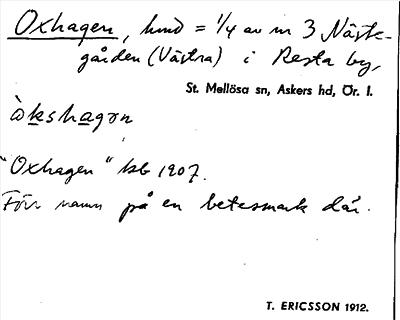 Oxhagen, hmd = 1/4 av nr 3 Näste-
gården (Västra) i Resta by,
St. Mellösa sn, Askers hd, Ör. l.
ò̀kshagɔn
"Oxhagen" kb 1907.
Förr namn på en betesmark där.
T. ERICSSON 1912.